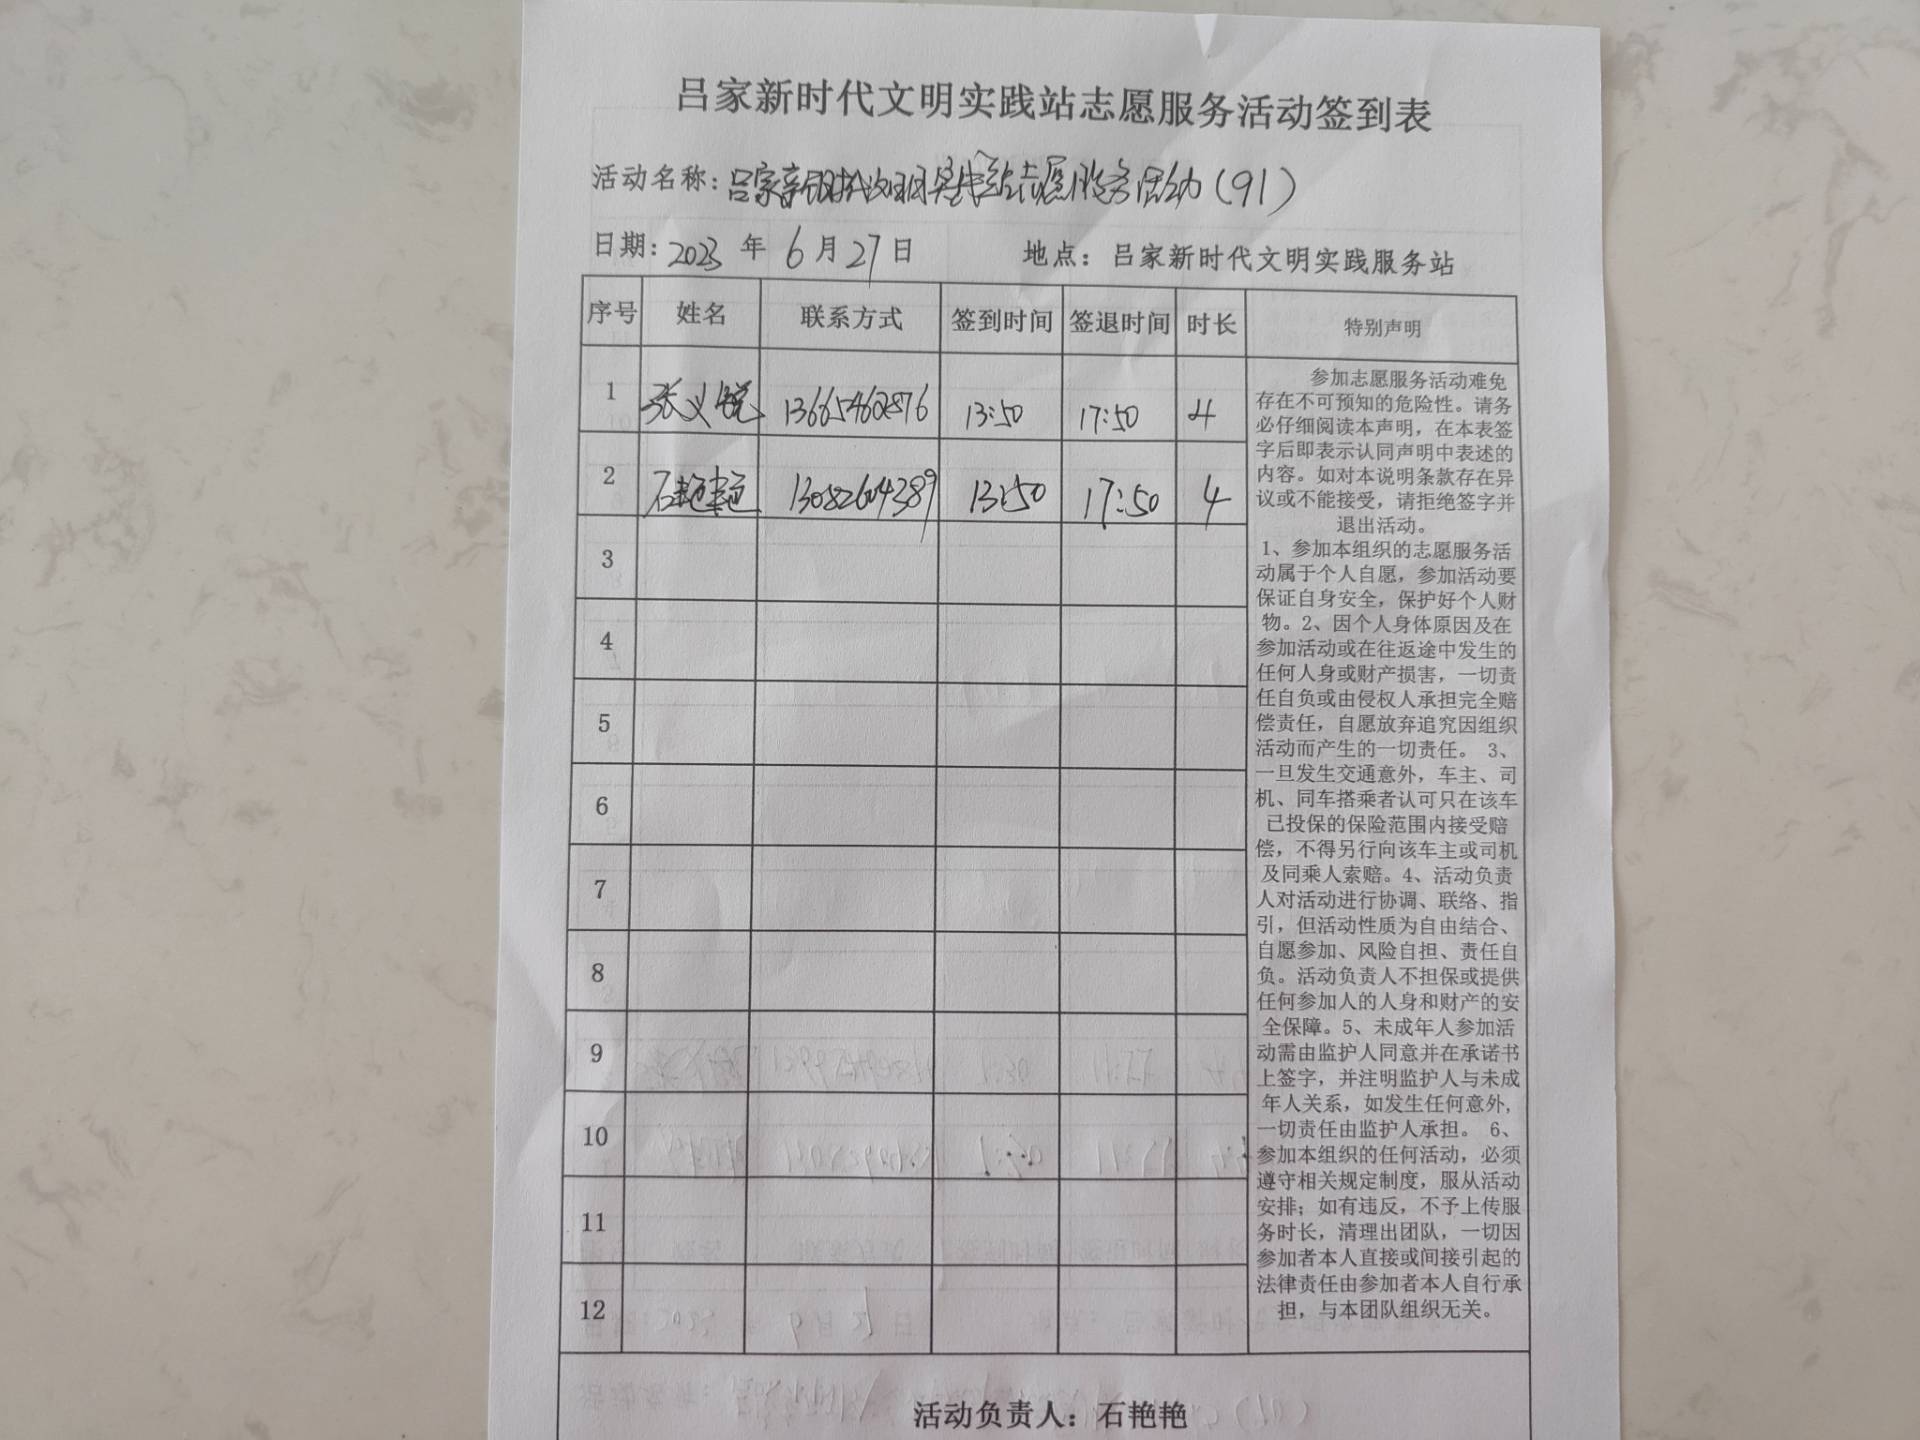 吕家新时代文明实践站志愿服务活动签到表
活动名称：吕家新时代文明实践站志愿服务活动（91）
日期：2023 年 6 月 27 日 地点：吕家新时代文明实践服务站
序号 姓名 联系方式 签到时间 签退时间 时长 特别声明
1 张义锐 13665462876 13:50 17:50 4
2 石艳艳 13082604389 13:50 17:50 4
3
4
5
6
7
8
9
10
11
12
参加志愿服务活动难免
存在不可预知的危险性。请务
必仔细阅读本声明，在本表签
字后即表示认同声明中表述的
内容。如对本说明条款存在异
议或不能接受，请拒绝签字并
退出活动。
1、参加本组织的志愿服务活
动属于个人自愿，参加活动要
保证自身安全，保护好个人财
物。2、因个人身体原因及在
参加活动或在往返途中发生的
任何人身或财产损害，一切责
任自负或由侵权人承担完全赔
偿责任，自愿放弃追究因组织
活动而产生的一切责任。 3、
一旦发生交通意外，车主、司
机、同车搭乘者认可只在该车
已投保的保险范围内接受赔
偿，不得另行向该车主或司机
及同乘人索赔。4、活动负责
人对活动进行协调、联络、指
引，但活动性质为自由结合、
自愿参加、风险自担、责任自
负。活动负责人不担保或提供
任何参加人的人身和财产的安
全保障。5、未成年人参加活
动需由监护人同意并在承诺书
上签字，并注明监护人与未成
年人关系，如发生任何意外，
一切责任由监护人承担。 6、
参加本组织的任何活动，必须
遵守相关规定制度，服从活动
安排；如有违反，不予上传服
务时长，清理出团队，一切因
参加者本人直接或间接引起的
法律责任由参加者本人自行承
担，与本团队组织无关。
活动负责人：石艳艳